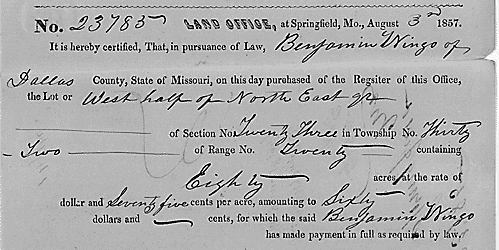 No. 23785 LAND OFFICE, at Springfield, Mo., August 3rd 1857.
It is hereby certified, That, in pursuance of Law, Benjamin Wingo of
Dallas County, State of Missouri, on this day purchased of the Regsiter of this Office,
the Lot or West half of North East qr
of Section No. Twenty Three in Township No. Thirty
- Two of Range No. Twenty containing
Eighty acres, at the rate of
dollar and Seventy five cents per acre, amounting to Sixty
dollars and — cents, for which the said Benjamin Wingo
has made payment in full as required by law.